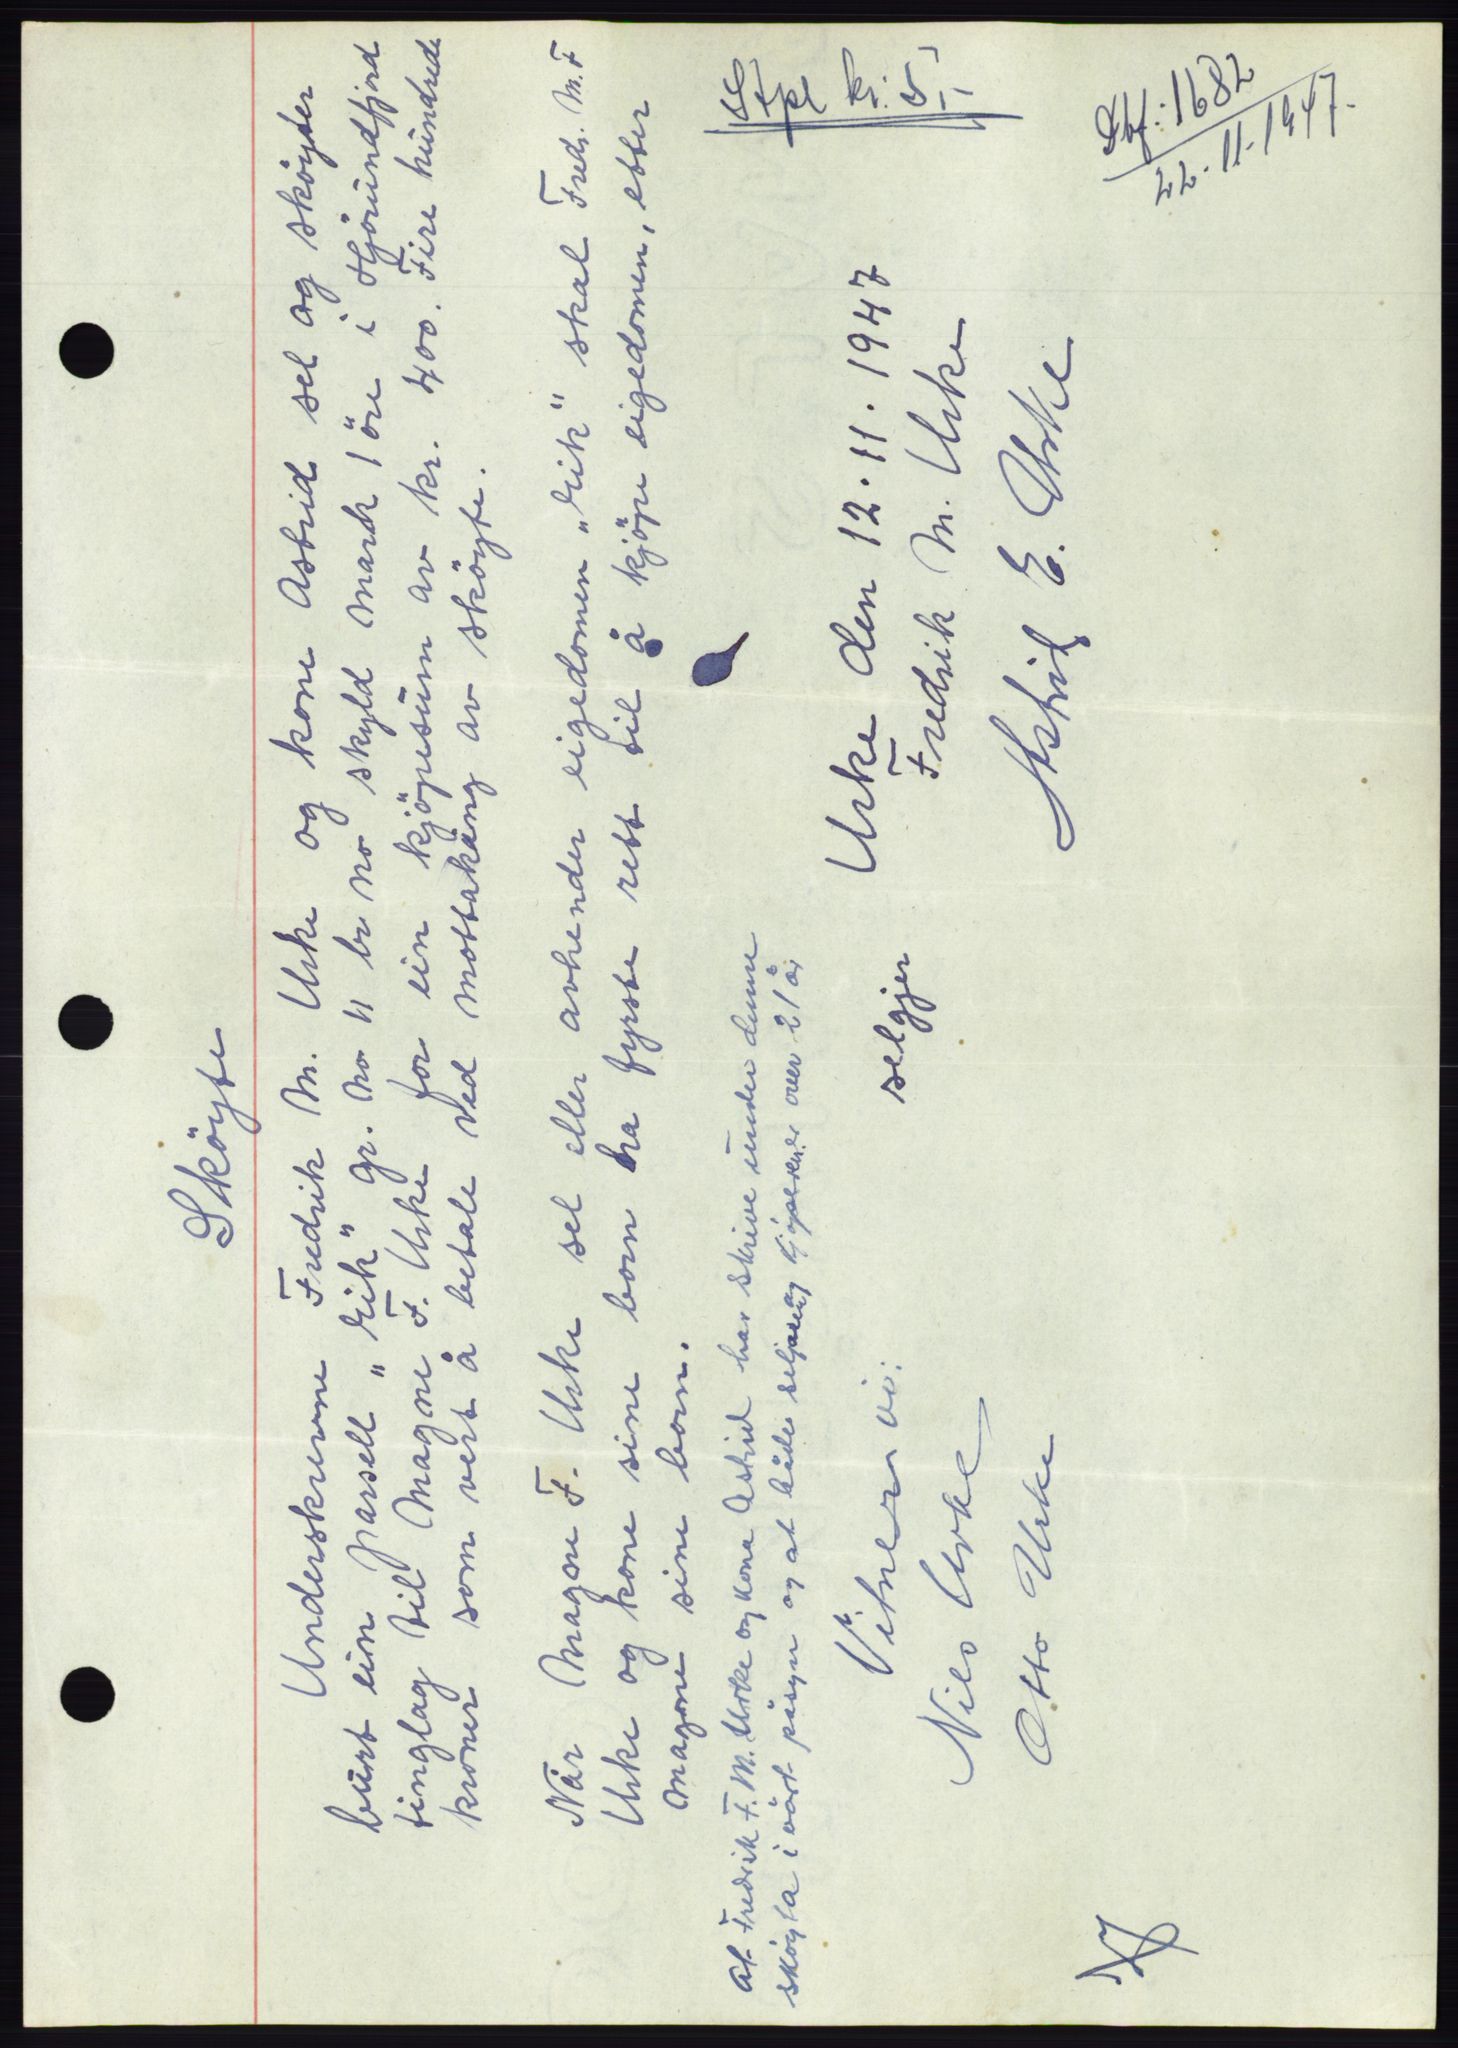 Sköyte
Underskrevne Fredrik M. Urke og kone Astrid sel og sköyter
burt ein parsell „Eik" gr. no 11 br no skyld mark 1 öre i Hjörundfjord
tinglag til Magne F. Urke for ein kjöpesum av kr. 400. Fire hundrede
kroner som vert å betale ved mottakung av sköyte.
Når Magne F. Urke sel eller avhender eigedomen „Eik" skal Fredr. M. F
Urke og kone sine born ha fyrste rett til å kjöpe eigedomen, etter
Magne sine born.
Stpl kr. 5
At Fredrik F. M. Urke og kona Astrid har skrive under denne
sköyta i vårt påsyn og at både seljar og kjöparen er over 21 år
Vitner vi:
Nils Urke
Otto Urke
Urke den 12.11.1947
selgjer Fredrik M. Urke
Astrid E. Urke
Dbf: 1682
22.11.1947.